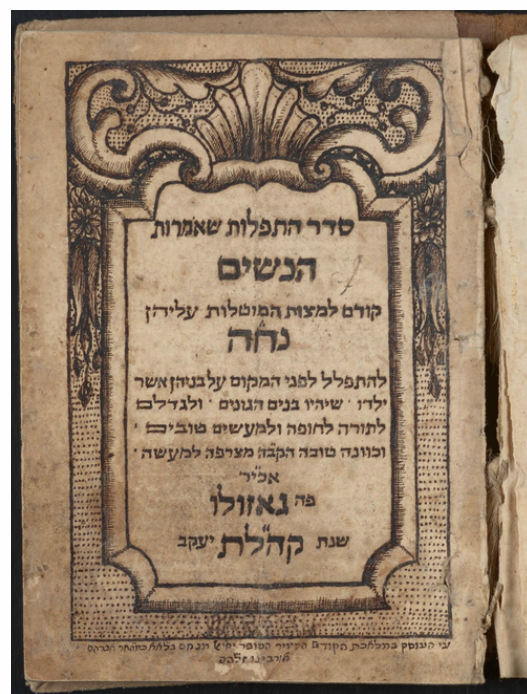 סדר התפלות שאומרות
הנשים
קודם למצות המוטלות עליהן
נח״ה
להתפלל לפני המקום על בניהן אשר
ילדו · שיהיו בנים הגונים · ולגדלם
לתורה לחופה ולמעשים טובים ·
וכוונה טובה הקב״ה מצרפה למעשה ·
אכי״ר
פה גאזולו
שנת קה״לת יעקב
ע״י העוסק במלאכת הקודש הצעיר הסופר